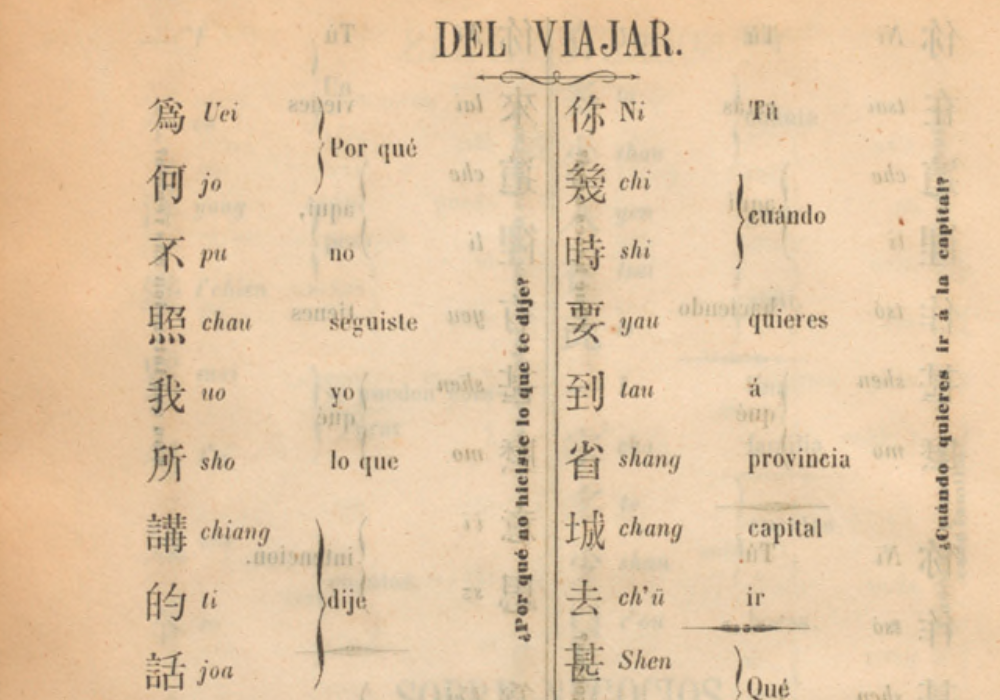 DEL VIAJAR.
爲 Uei
何 jo
Por qué
不 pu no
照 chau seguiste
我 uo yo
所 sho lo que
講 chiang
的 ti
話 joa
dije
¿Por qué no hiciste lo que te dije?
你 Ni Tú
幾 chi
時 shi
cuándo
要 yau quieres
到 tau á
省 shang provincia
城 chang capital
去 ch'ü ir
¿Cuándo quieres ir á la capital?
甚 Shen
Qué